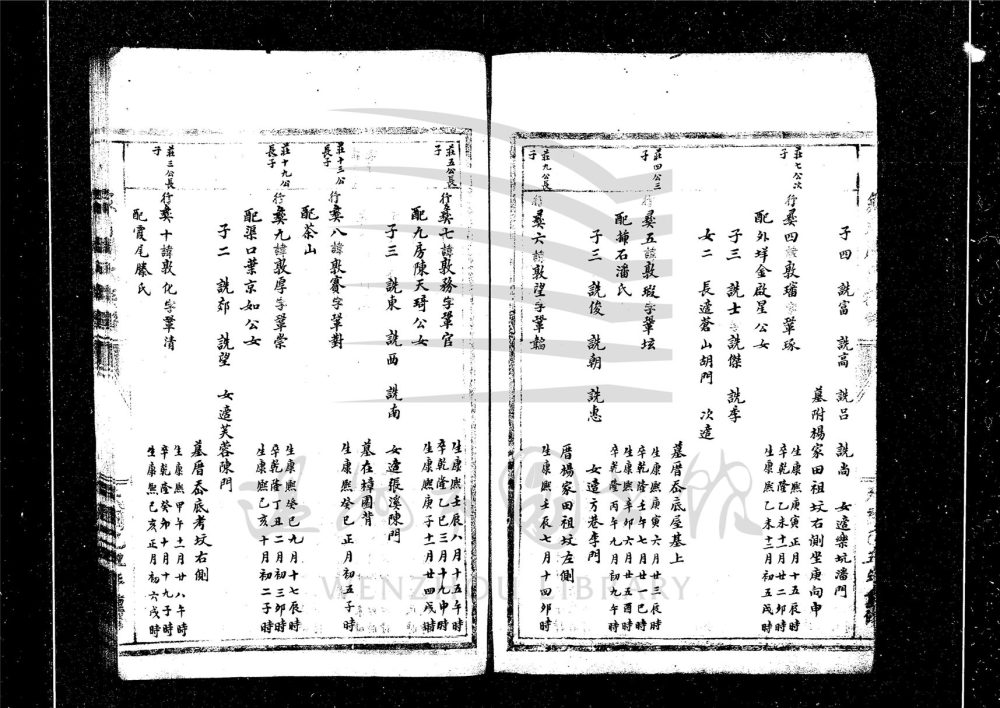 子四 詵富 詵高 詵呂 詵尚 女遠樂坑潘門
墓附楊家田祖坟右測坐庚向申
莊七公次子
行彛四諱敦璠字鞏琢
生康熙庚寅正月十五辰時
卒乾隆乙未十一月廿二卯時
配外垟金啟星公女
生康熙乙未十二月初五戌時
子三 詵士 詵傑 詵季
女二 長遠蒼山胡門 次遠
墓厝岙底屋基上
莊四公三子
行彛五諱敦瑕字鞏坛
生康熙庚寅六月廿三辰時
卒乾隆壬午七月廿一巳時
配蒲石潘氏
生康熙辛卯六月廿五酉時
卒乾隆丙午九月初九午時
子三 詵俊 詵朝 詵惠 女遠方巷李門
厝楊家田祖坟左側
莊九公長子
行彛六諱敦望字鞏韜
生康熙壬辰七月十四卯時
莊五公長子
行彛七諱敦務字鞏官
生康熙壬辰八月十五午時
卒乾隆乙巳三月十九申時
配九房陳天琦公女
生康熙庚子十二月廿四戌時
子三 詵東 詵西 詵南 女遠張溪陳門
墓在樟園背
莊十三公長子
行彛八諱敦賽字鞏對
生康熙癸巳正月初五子時
配茶山
莊十九公長子
行彛九諱敦厚字鞏崇
生康熙癸巳九月十七辰時
卒乾隆丁丑二月初三卯時
配渠口葉京如公女
生康熙己亥十月初二子時
子二 詵郊 詵望 女遠芙蓉陳門
墓厝岙底考坟右側
莊三公長子
行彛十諱敦化字鞏清
生康熙甲午十二月廿八午時
卒乾隆癸卯十月十九子時
配霞尾滕氏
生康熙己亥正月初六戌時
WENZHOU LIBRARY